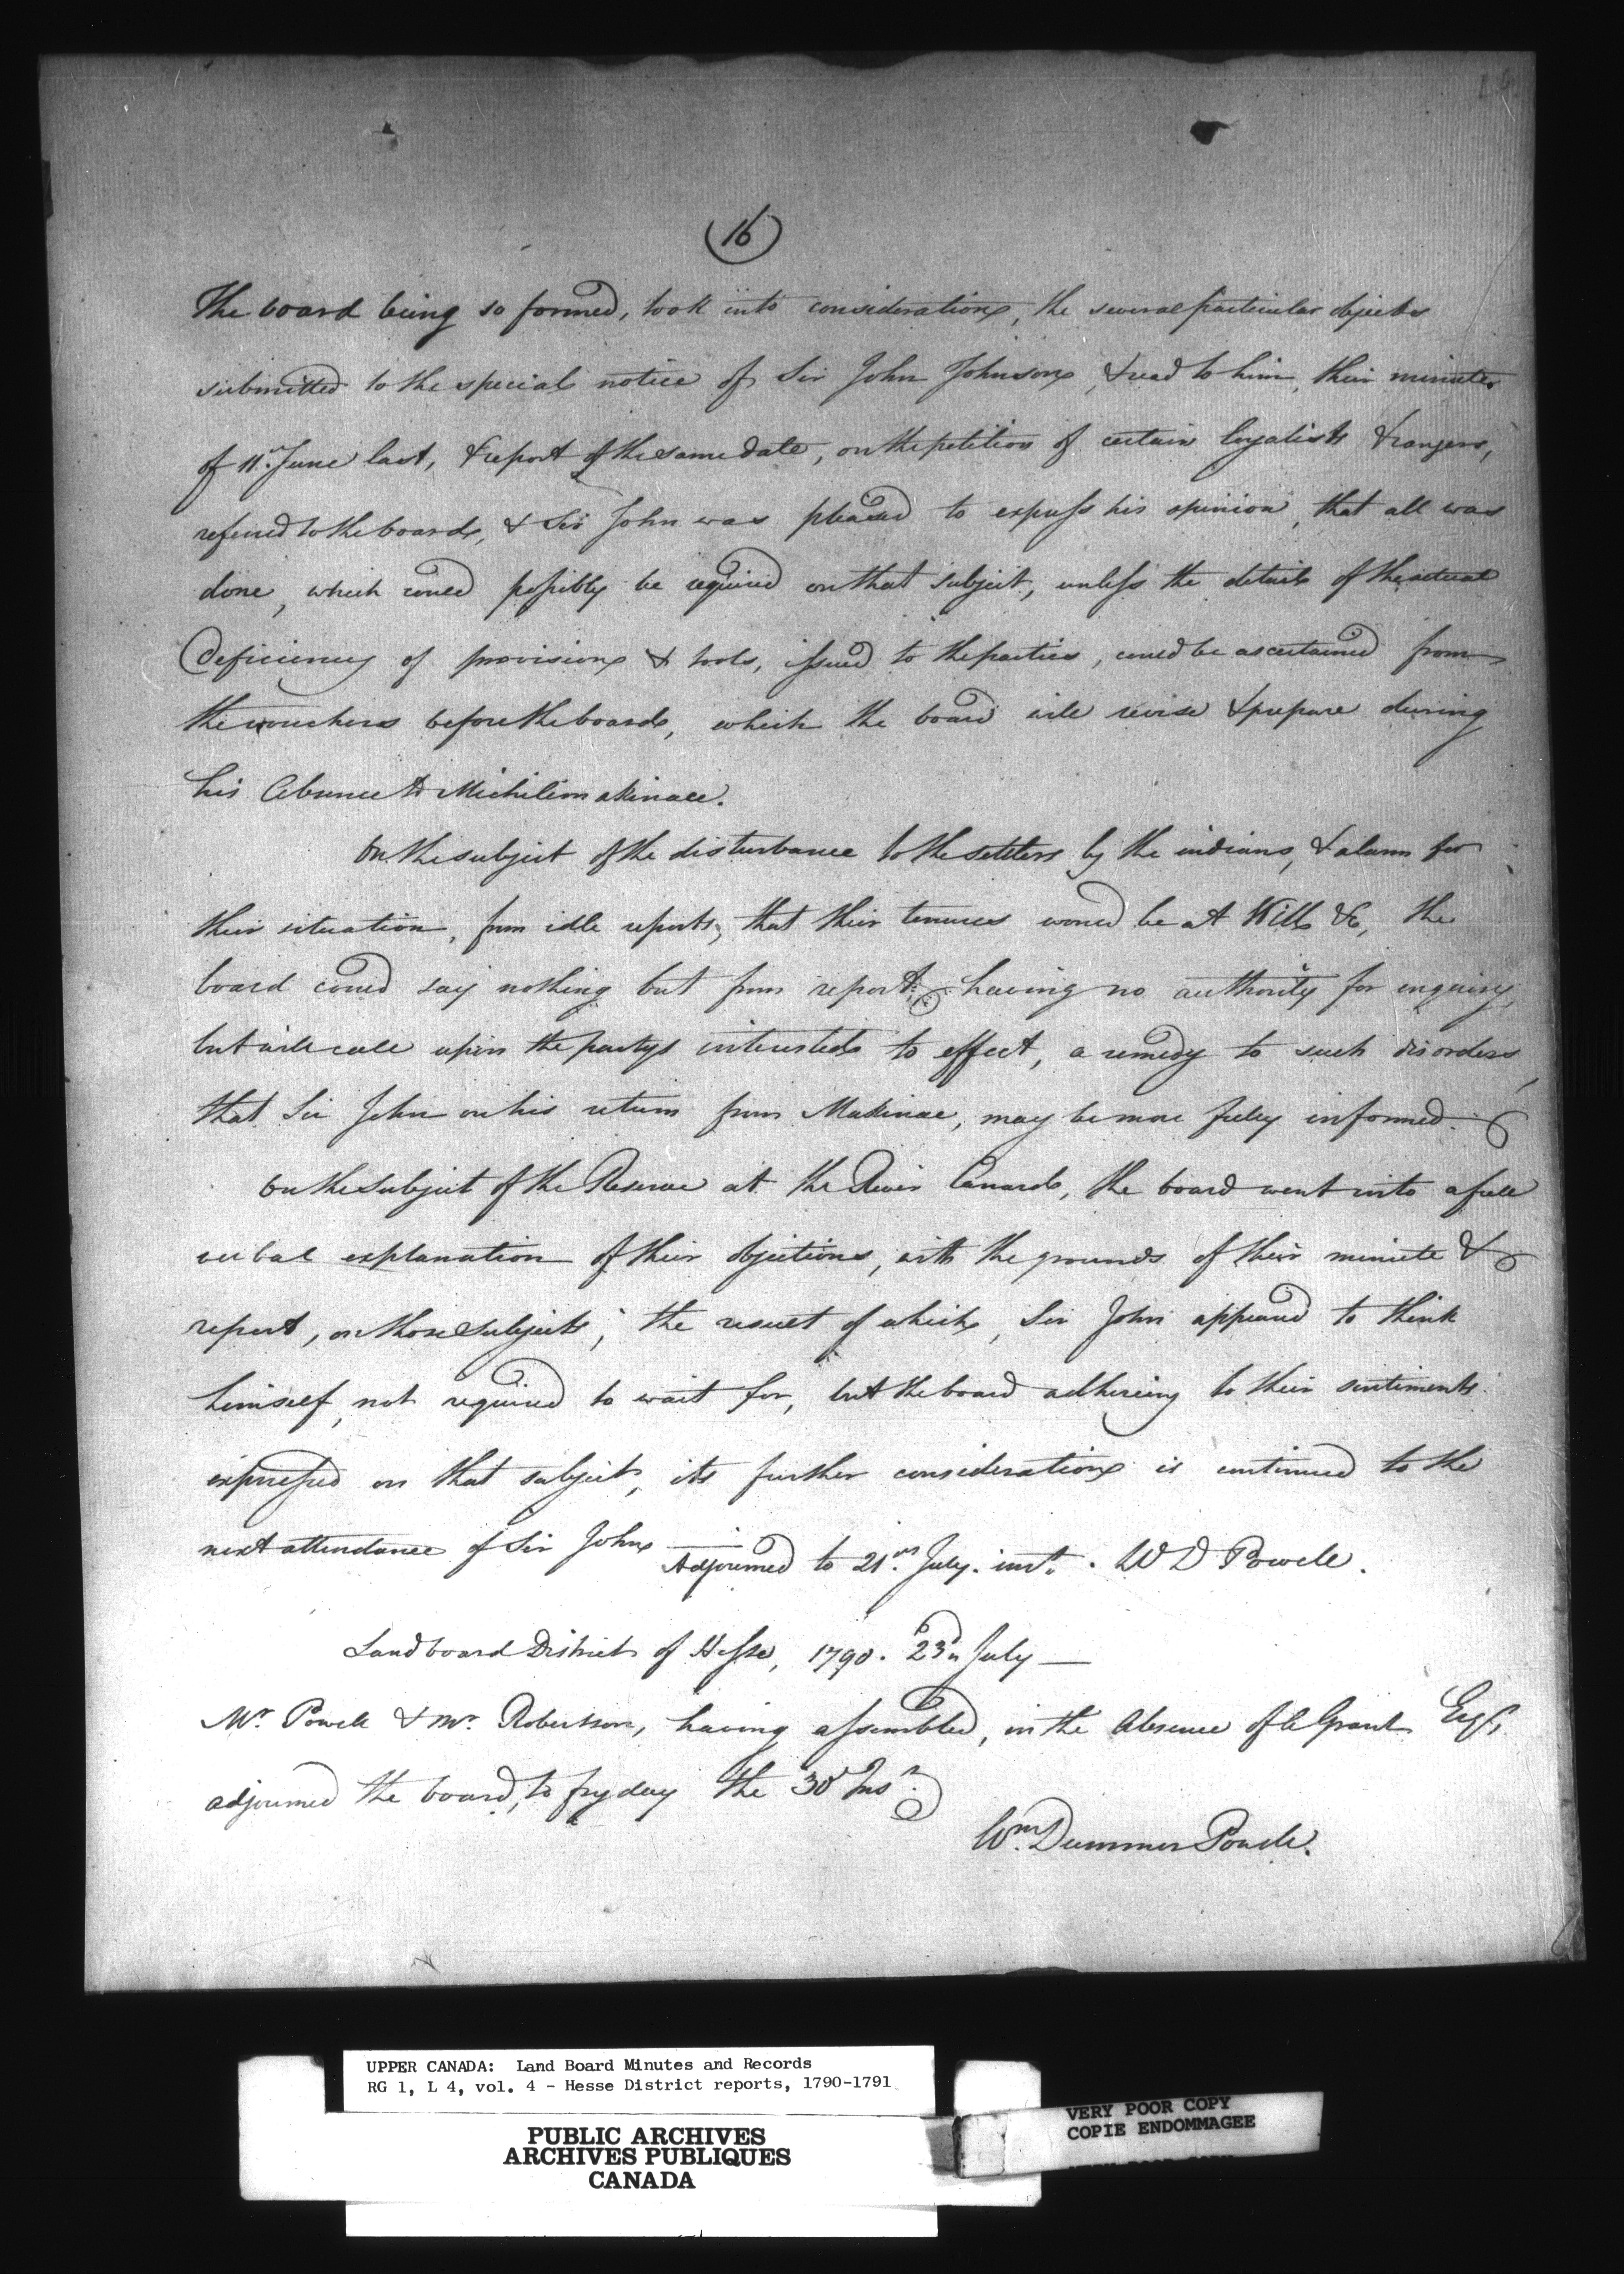 (16)
The board being so formed, took into consideration, the several particular objects
submitted to the special notice of Sir John Johnson, & read to him, their minutes
of 11th June last, & report of the same date, on the petition of certain loyalists & rangers,
referred to the board, & Sir John was pleased to express his opinion, that all was
done, which could possibly be required on that subject, unless the details of the actual
Deficiency of provision & tools, issued to the parties, could be ascertained from
the vouchers before the board, which the board will revise & prepare during
his Absence to Michilimakinac.
On the subject of the disturbance to the settlers by the indians, & alarm for
their situation, from idle reports, that their tenures would be at Will &c, the
board could say nothing but from report, having no authority for enquiry,
but will call upon the partys interested to effect, a remedy to such disorders,
that Sir John on his return from Makinac, may be more fully informed.
On the subject of the Reserve at the River Canard, the board went into a full
verbal explanation of their objections, with the grounds of their minute &
report, on those subjects; the result of which, Sir John appeared to think
himself, not required to wait for, but the board adhering to their sentiments
expressed on that subject, its further consideration is continued to the
next attendance of Sir John
Adjourned to 21st July. inst. W D Powell.
Land board District of Hesse, 1790. 23d July —
Mr. Powell & Mr. Robertson, having assembled, in the Absence of Grant Esqr,
adjourned the board, to fryday the 30 Inst.
Wm. Dummer Powell.
UPPER CANADA: Land Board Minutes and Records
RG 1, L 4, vol. 4 - Hesse District reports, 1790-1791
PUBLIC ARCHIVES
ARCHIVES PUBLIQUES
CANADA
VERY POOR COPY
COPIE ENDOMMAGEE